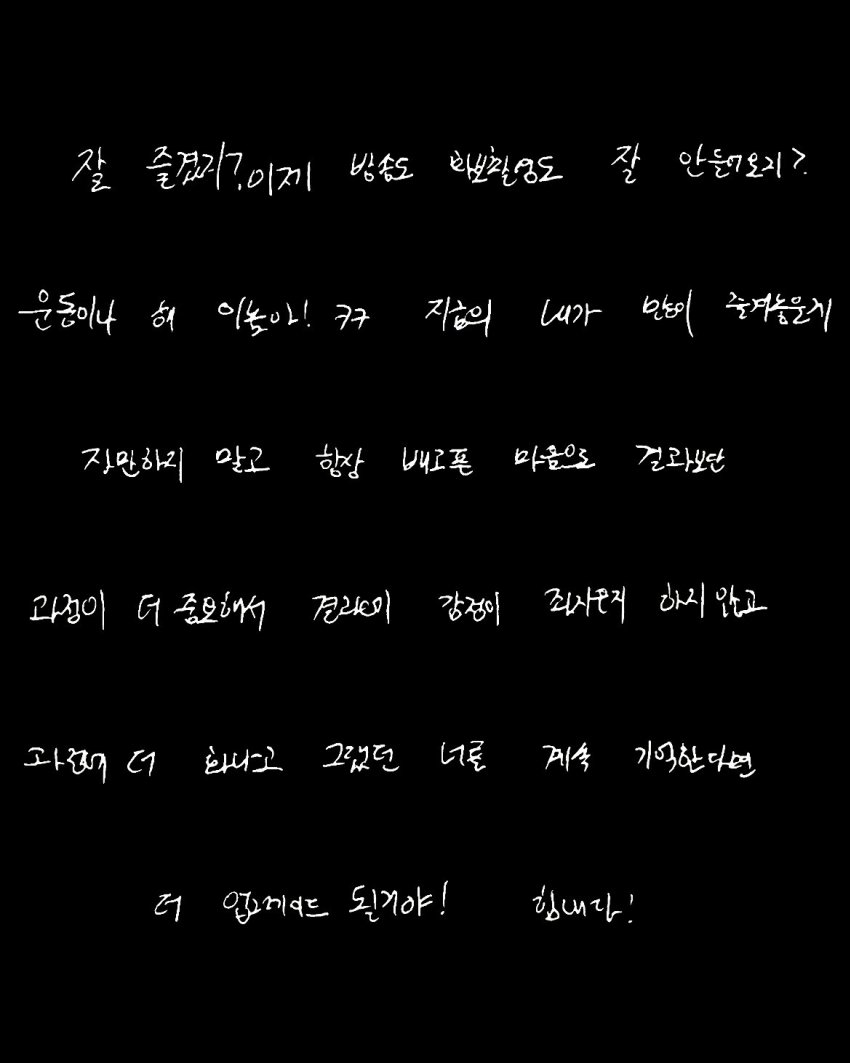 잘 즐겼지? 이제 방송도 화보촬영도 잘 안들어오지?
운동이나 해 이놈아! ㅋㅋ 지금의 내가 많이 즐겨놓을게
자만하지 말고 항상 배고픈 마음으로 결과보단
과정이 더 중요해서 결과에 감정이 좌지우지 하지 않고
과정에 더 화나고 그랬던 너를 계속 기억한다면
더 업그레이드 될거야! 힘내라!